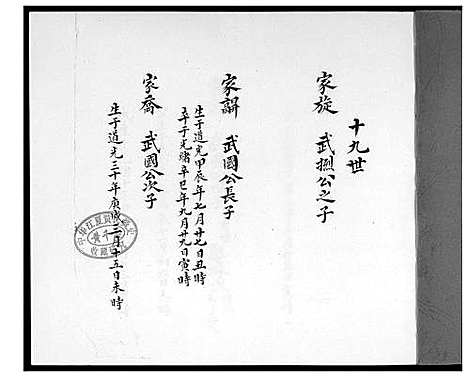 十九世
家旋　武烈公之子
家譓　武國公長子
生于道光甲辰年七月廿七日丑時
卒于光緒辛巳年九月廿九日寅時
家喬　武國公次子
生于道光三十年庚戌二月十五日未時